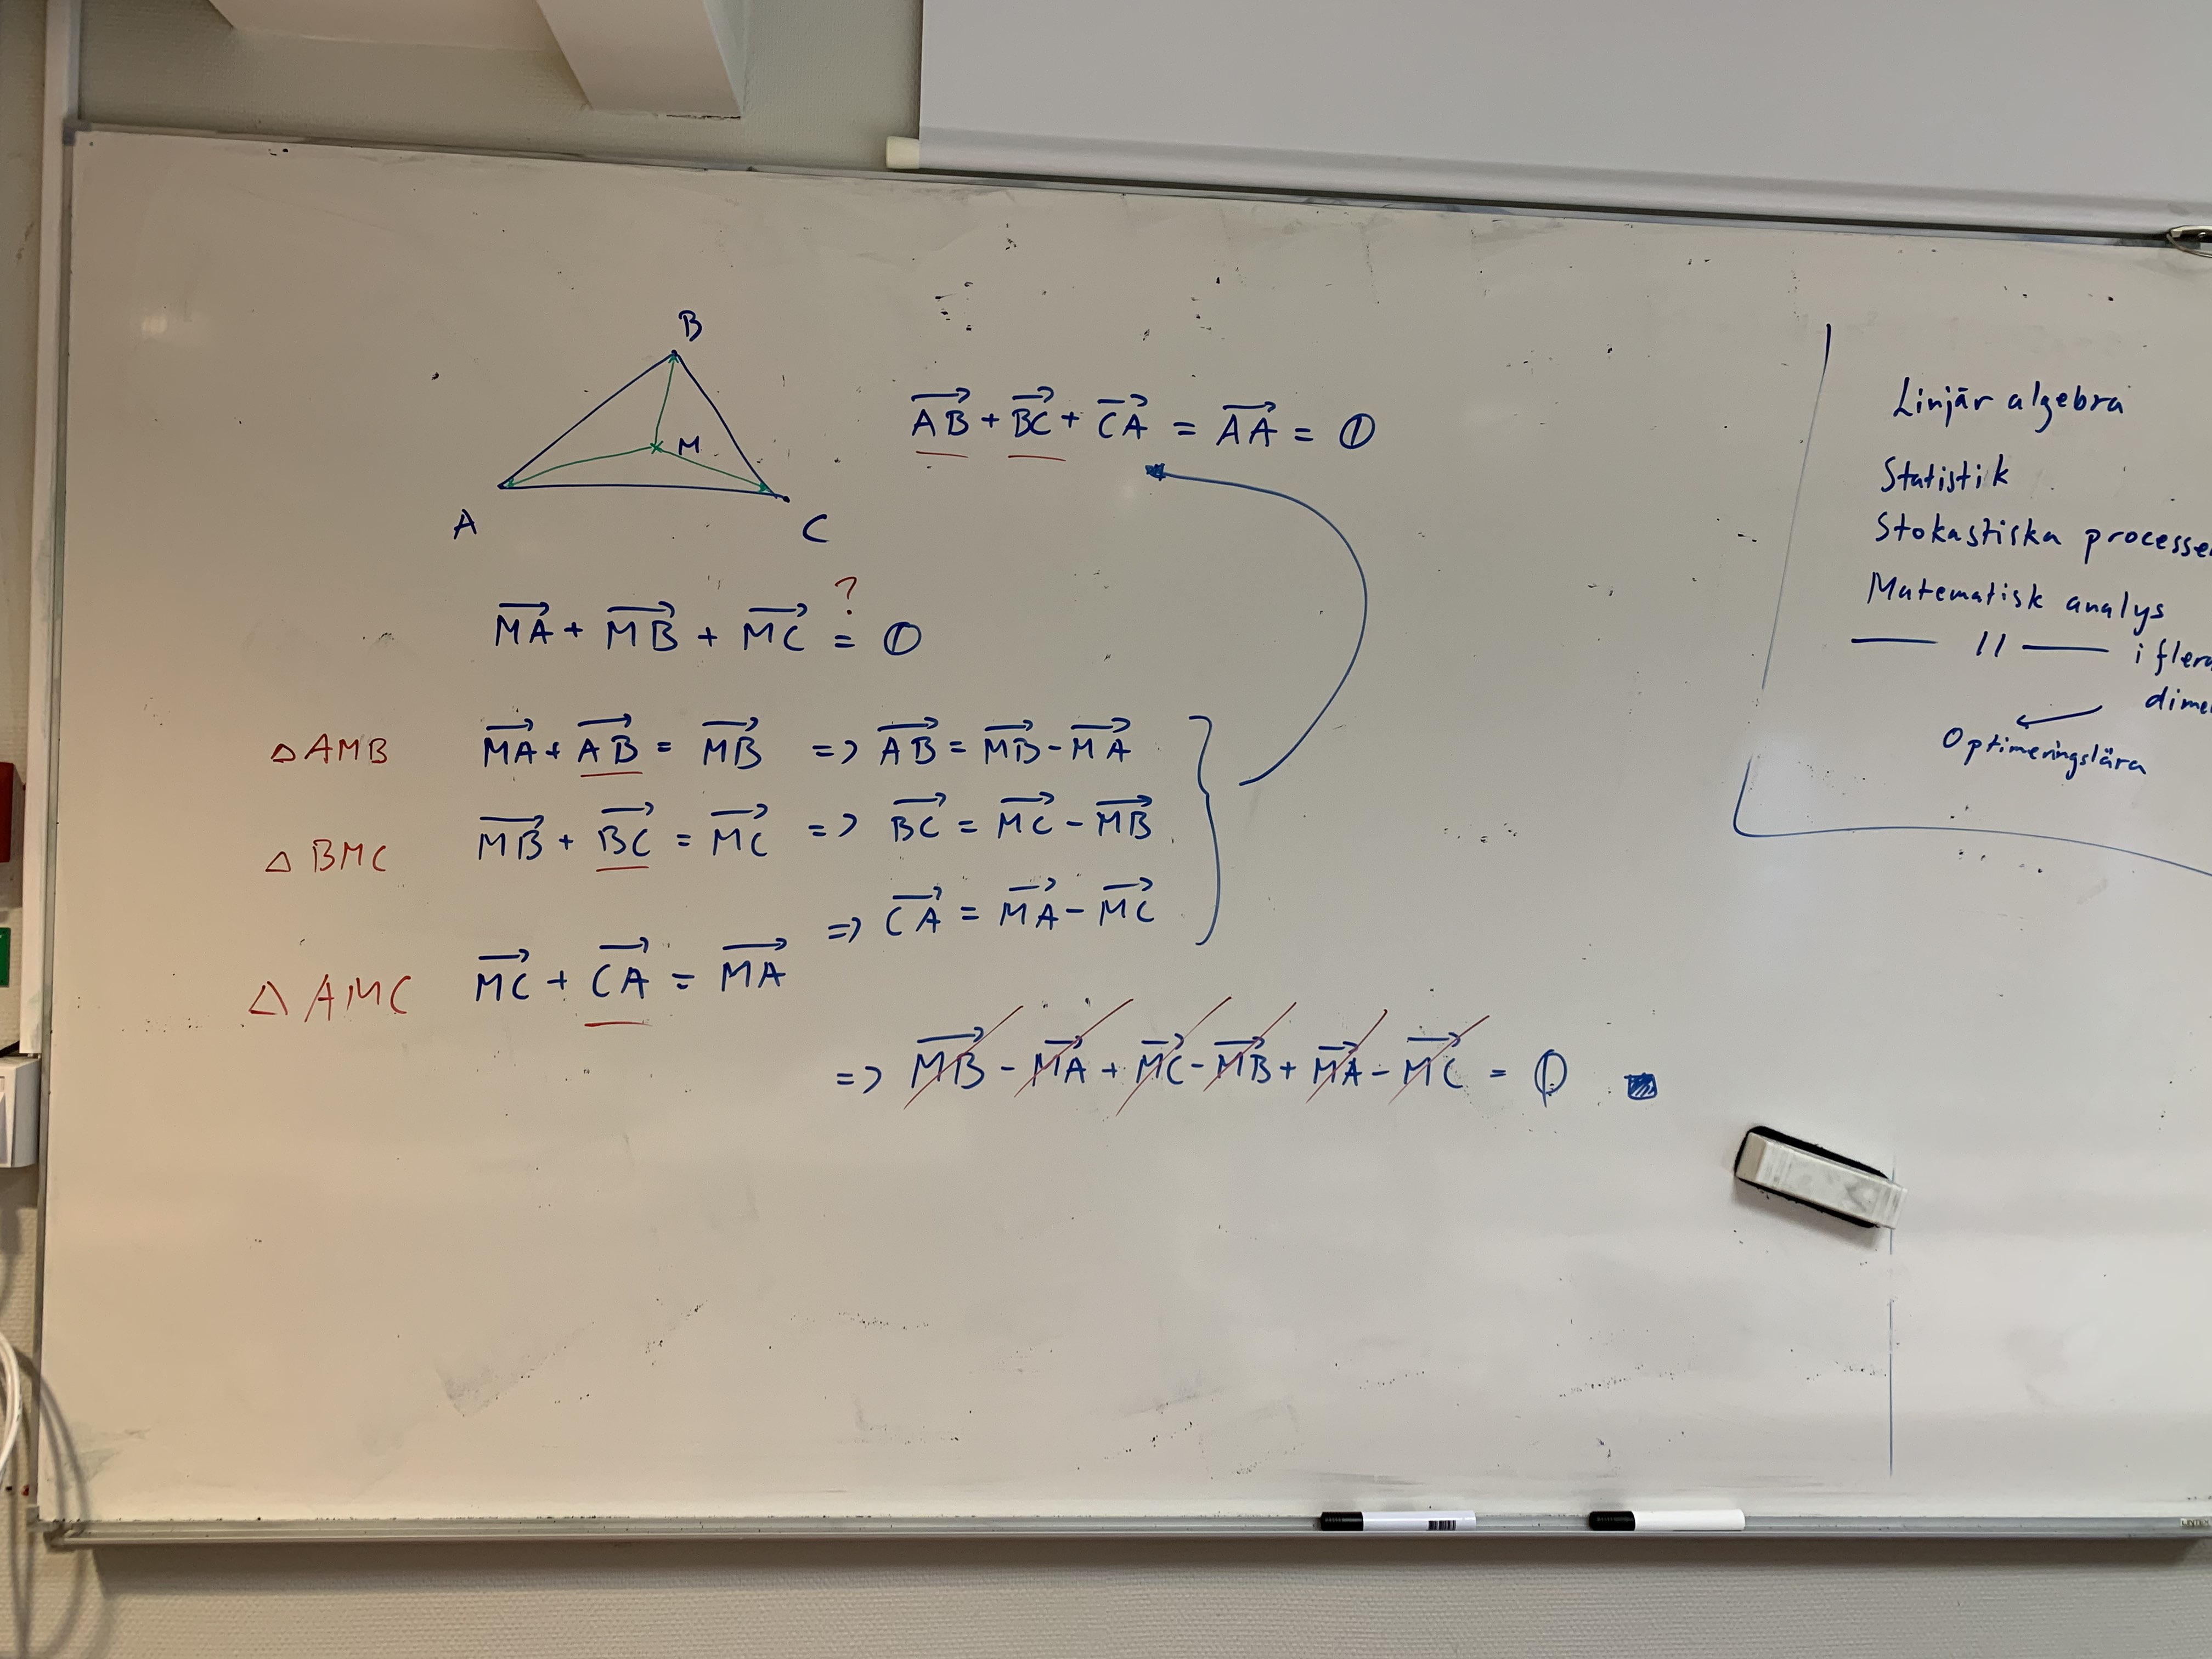 B
M
A
C
→AB + →BC + →CA = →AA = 𝟘
→MA + →MB + →MC ?= 𝟘
△AMB →MA + →AB = →MB => →AB = →MB - →MA
△BMC →MB + →BC = →MC => →BC = →MC - →MB
=> →CA = →MA - →MC
△AMC →MC + →CA = →MA
=> →MB - →MA + →MC - →MB + →MA - →MC = 𝟘 ■
Linjär algebra
Statistik
Stokastiska
Matematisk analys
— 11 — i
Optimeringslära